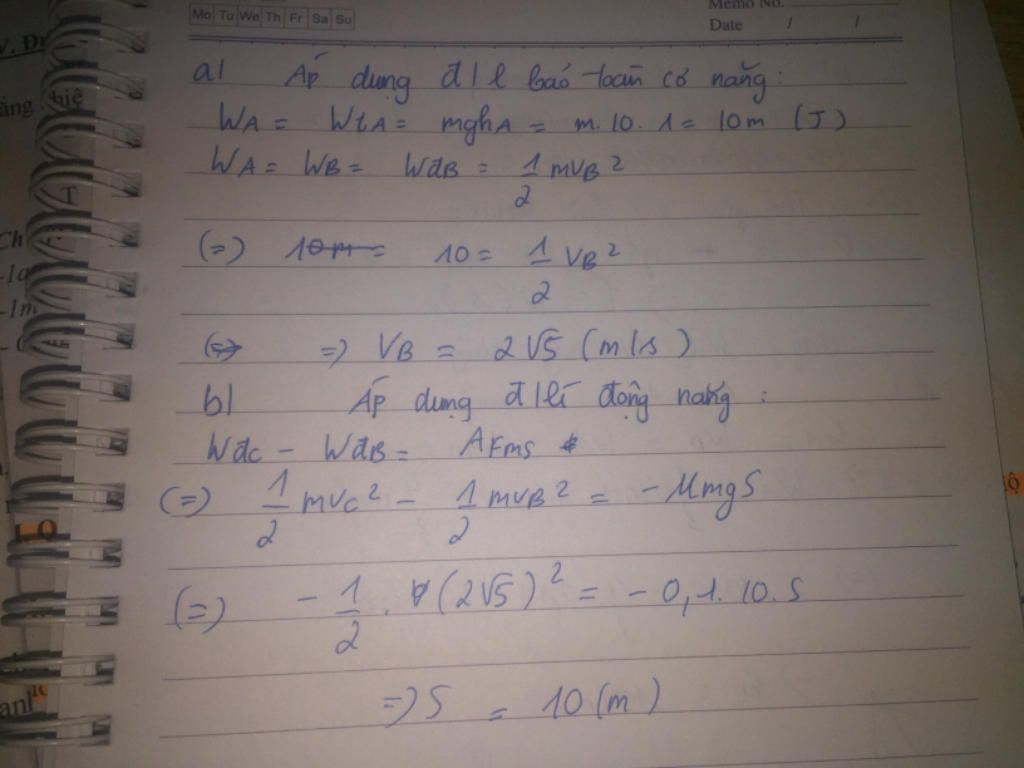 Memo No.
Mo Tu We Th Fr Sa Su
Date / /
a/ Áp dụng đ/l bảo toàn cơ năng:
WA = WtA = mghA = m.10.1 = 10m (J)
WA = WB = WđB = 1/2 mVB²
(=) 10m = 10 = 1/2 VB²
(=) =) VB = 2√5 (m/s)
b/ Áp dụng đ/lí động năng :
WđC - WđB = AFms
(=) 1/2 mVC² - 1/2 mVB² = -μmgS
(=) -1/2 . (2√5)² = -0,1.10.S
=) S = 10 (m)